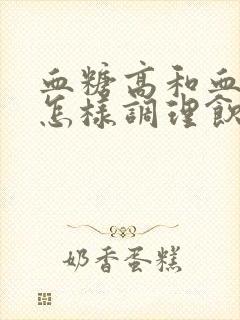 血糖高和血
怎樣調理飲
奶香蛋糕